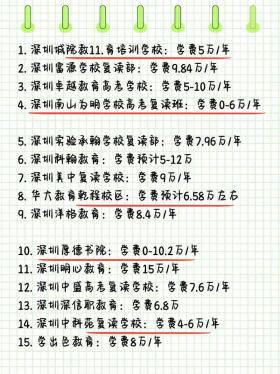 1. 深圳城院教11.育培训学校：学费5万/年
2. 深圳富源学校复读部：学费9.84万/年
3. 深圳卓越教育高考学校：学费5-10万/年
4. 深圳南山为明学校高考复读班：学费0-6万/年
5. 深圳实验承翰学校复读部：学费7.96万/年
6. 深圳科翰教育：学费预计5-12万
7. 深圳美中复读学校：学费9万/年
8. 华大教育乾程校区：学费预计6.58万左右
9. 深圳洋格教育：学费8.4万/年
10. 深圳厚德书院：学费0-10.2万/年
11. 深圳明心教育：学费15万/年
12. 深圳中盛高考复读学校：学费7.6万/年
13. 深圳深信职教育：学费6.8万
14. 深圳中科苑复读学校：学费4-6万/年
15. 学出色教育：学费8万/年